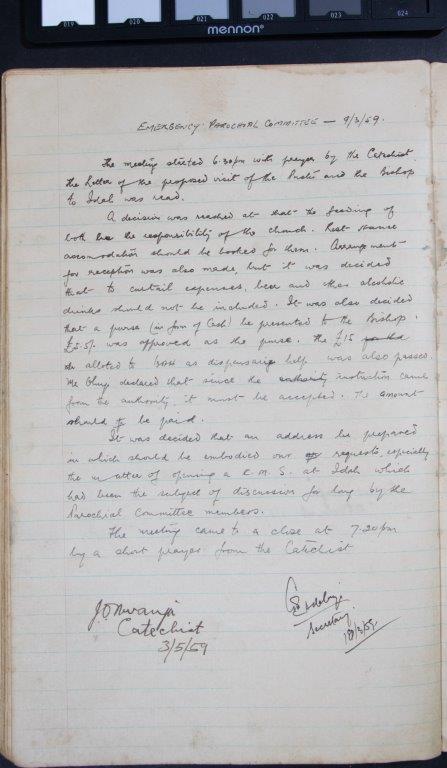 019 020 021 022 023 024
mennon
EMERGENCY PAROCHIAL COMMITTEE — 9/3/59.
The meeting started 6.30pm with prayer by the Catechist.
The Letter of the proposed visit of the and the Bishop
to Idah was read.
A decision was reached at that the feeding of
both the responsibility of the church. Rest House
accomodation should be booked for them. Arrangement
for reception was also made, but it was decided
that to curtail expenses, beer and other alcoholic
drinks should not be included. It was also decided
that a purse (in form of Cash) be presented to the Bishop.
£5.5/- was approved as the purse. The £15
alloted to as help was also passed.
Mr declared that since the instruction came
from the authority, it must be accepted. The amount
should be paid.
It was decided that an address be prepared
in which should be embodied our requests, especially
the matter of opening a at Idah which
had been the subject of discussion for long by the
Parochial Committee members.
The meeting came to a close at 7.20pm
by a short prayer from the Catechist
J.O. Nwanja
Catechist
3/5/59
Secretary
18/3/59